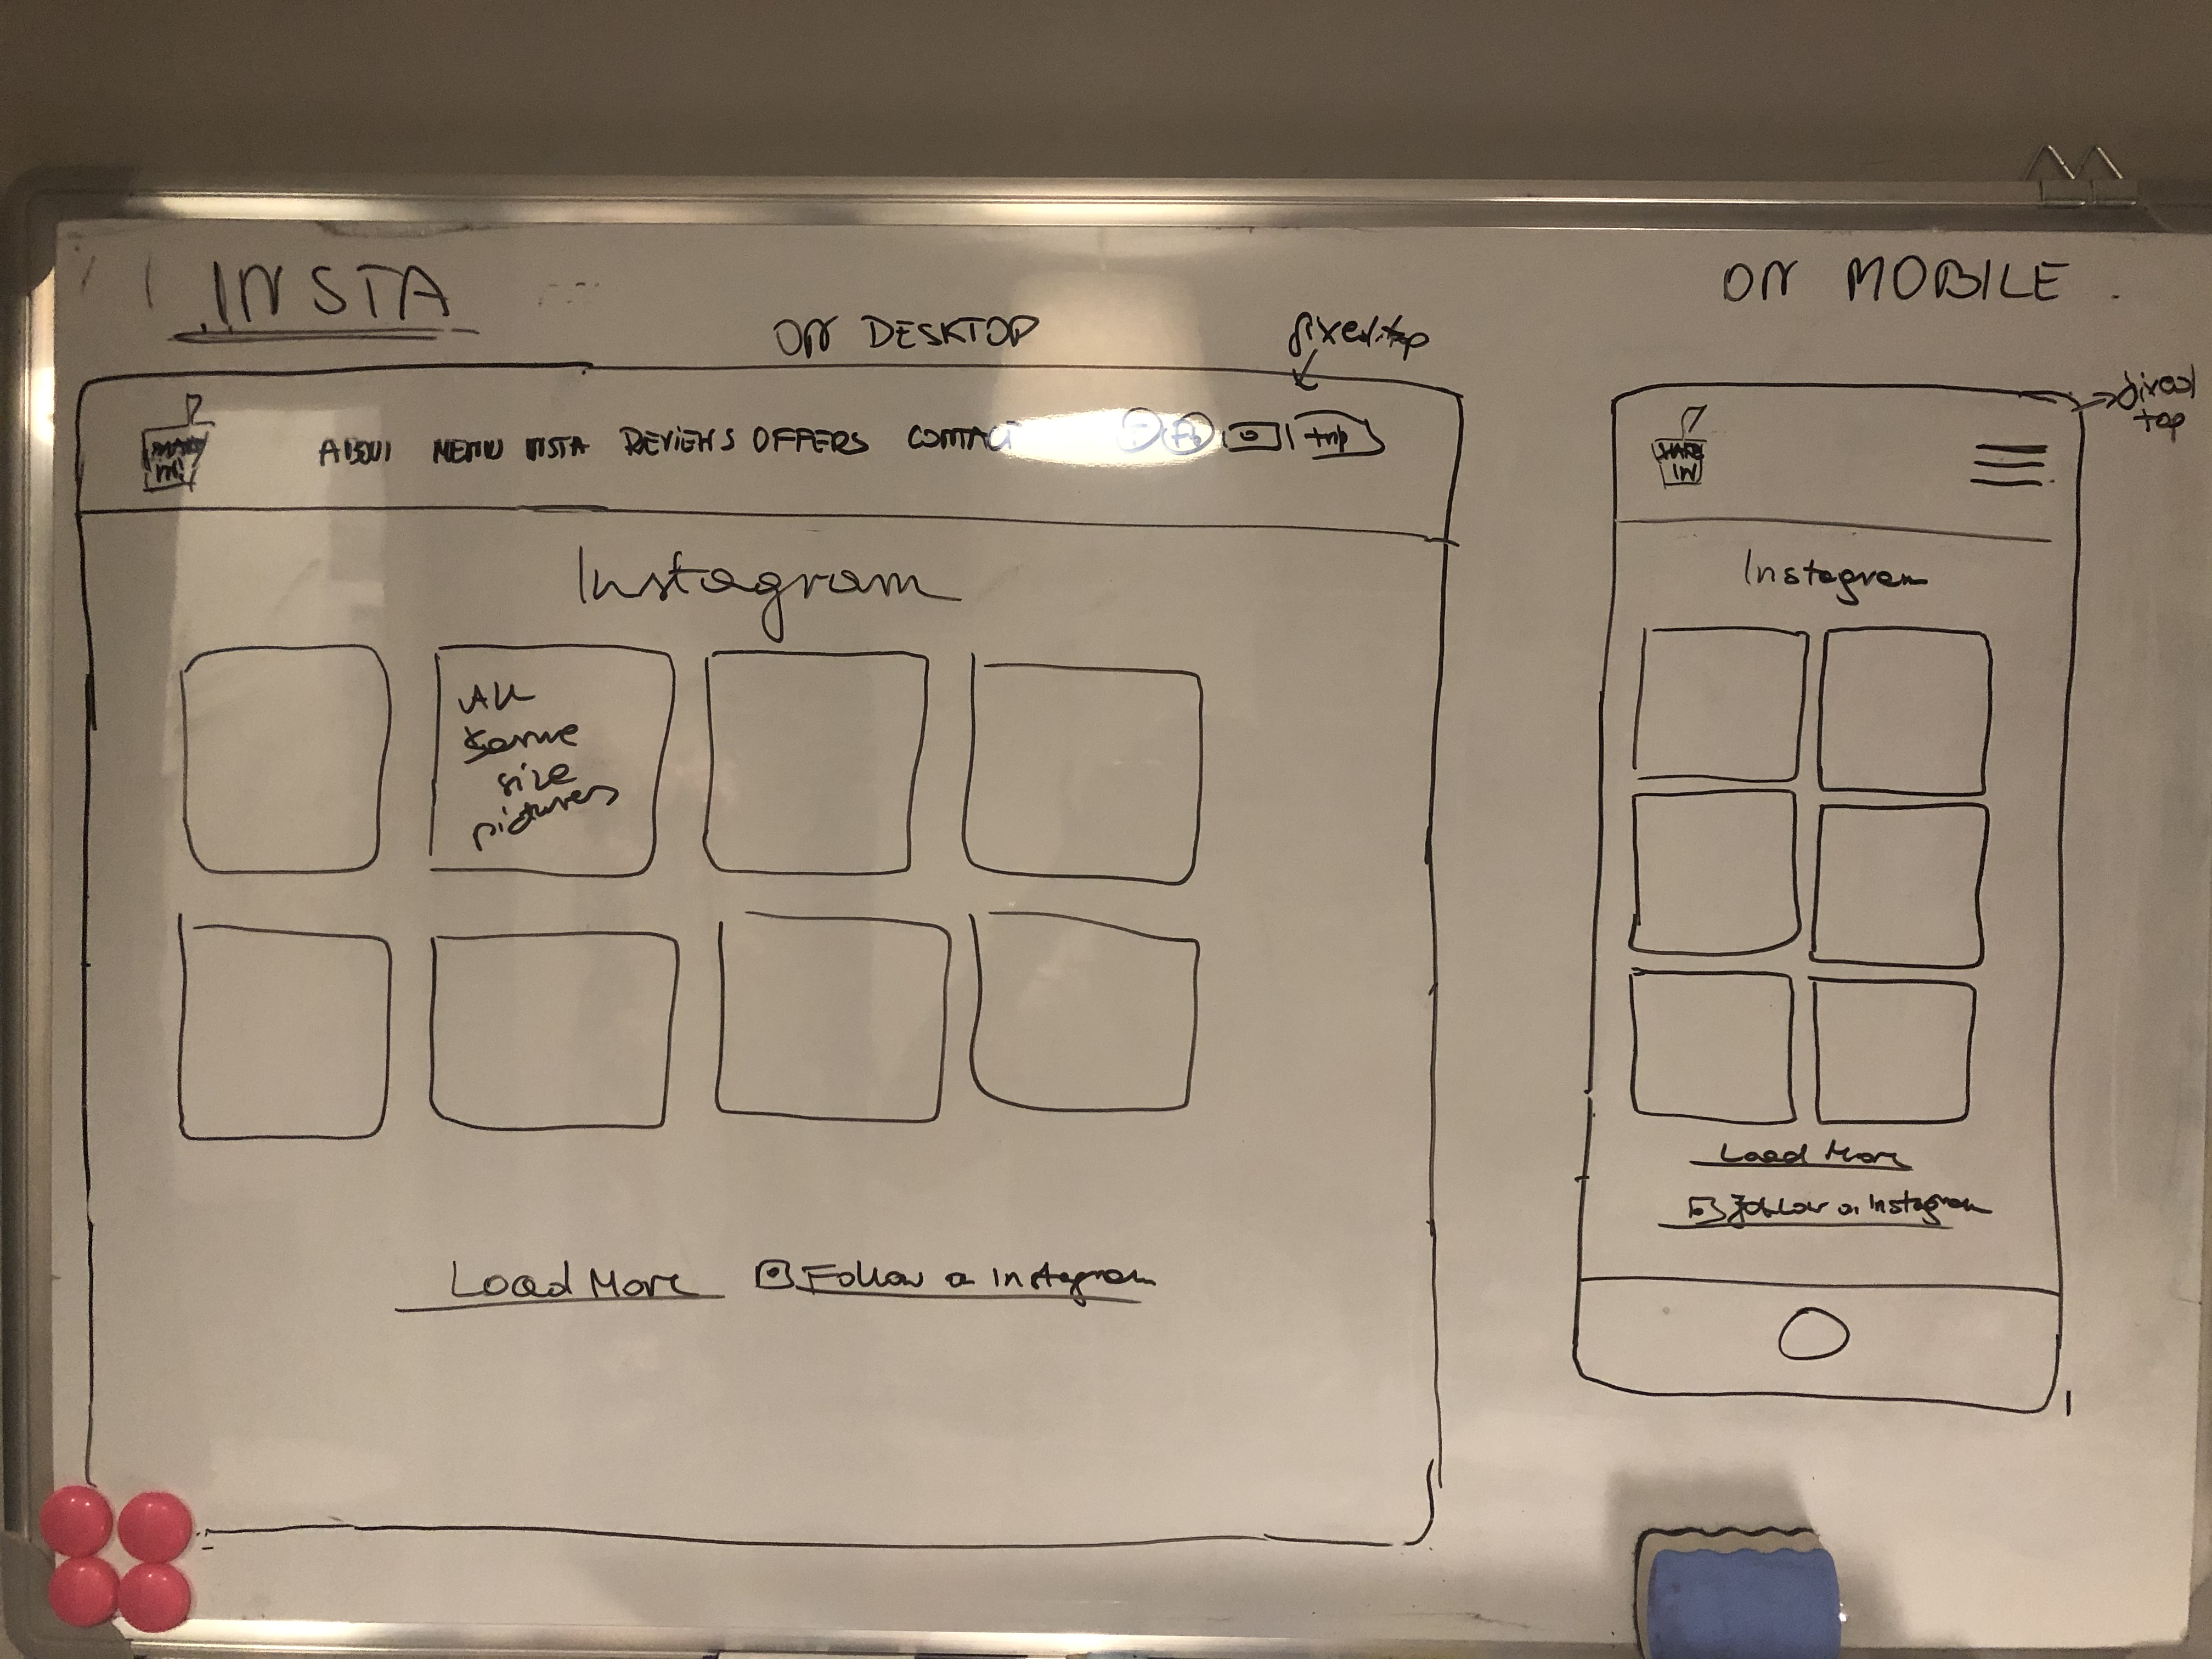 INSTA
ON DESKTOP
fixed-top
ABOUT MENU INSTA REVIEWS OFFERS CONTACT
Fb
trip
Instagram
All
same
size
pictures
Load More
Follow on Instagram
ON MOBILE
fixed
top
SHAKE
IN
Instagram
Load More
Follow on Instagram